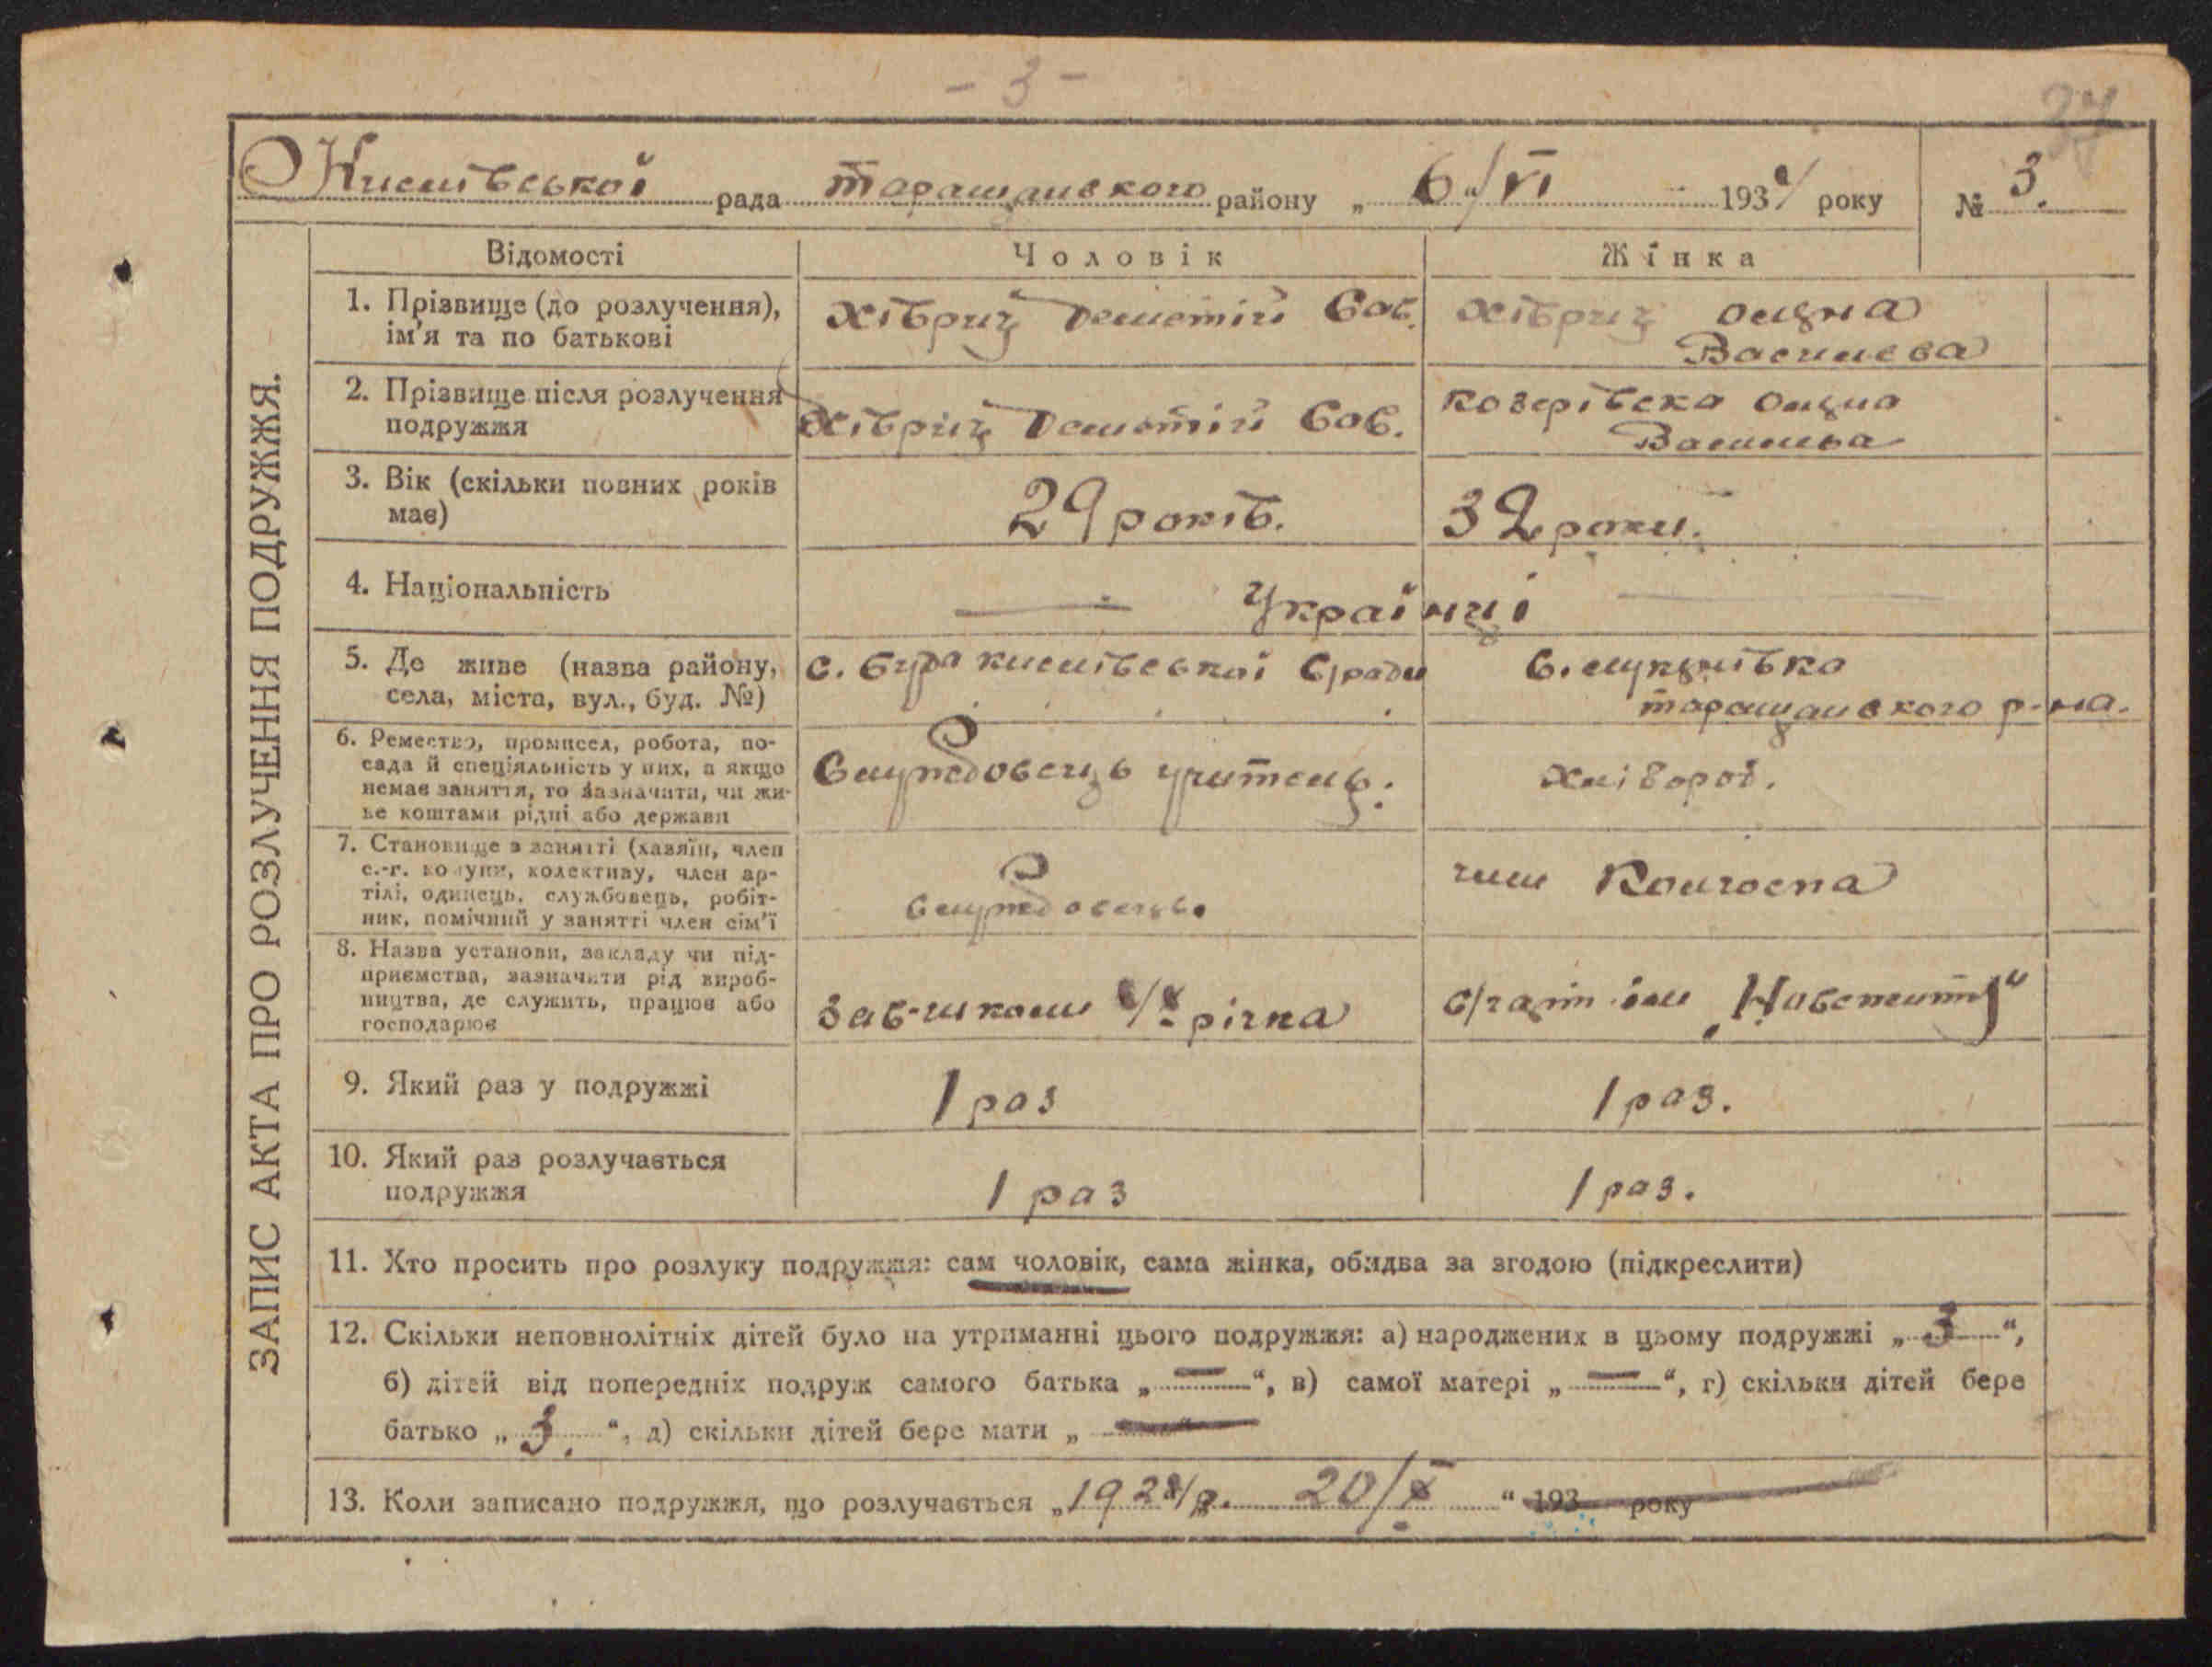 - 3 -
37
Кислівської рада таращанського району „ 6/VI 193 року № 3.
ЗАПИС АКТА ПРО РОЗЛУЧЕННЯ ПОДРУЖЖЯ.
Відомості Чоловік Жінка
1. Прізвище (до розлучення), ім'я та по батькові
Хібриц Сав.
Хібриц
Василева
2. Прізвище після розлучення подружжя
Хібриц Сав.
3. Вік (скільки повних років має)
29 років.
32 роки.
4. Національність
Українці
5. Де живе (назва району, села, міста, вул., буд. №)
с. Буда кислівської с/ради
с. лукянівка
таращанського р-на.
6. Ремество, промисел, робота, посада й спеціяльність у них, а якщо немає заняття, то зазначити, чи живе коштами рідні або держави
Службовець учитель.
хлібороб.
7. Становище в занятті (хазяїн, член с.-г. комуни, колективу, член артілі, одинець, службовець, робітник, помічний у занятті член сім'ї
службовець.
член Колгоспа
8. Назва установи, закладу чи підприємства, зазначити рід виробництва, де служить, працює або господарює
Зав-школи річка
с/г арт. ім
9. Який раз у подружжі
1 раз
1 раз.
10. Який раз розлучається подружжя
1 раз
1 раз.
11. Хто просить про розлуку подружжя: сам чоловік, сама жінка, обидва за згодою (підкреслити)
12. Скільки неповнолітніх дітей було на утриманні цього подружжя: а) народжених в цьому подружжі „ 3 “,
б) дітей від попередніх подруж самого батька „ — “, в) самої матері „ — “, г) скільки дітей бере
батько „ 3. “, д) скільки дітей бере мати „ —
13. Коли записано подружжя, що розлучається „ 20/X “ 193 року